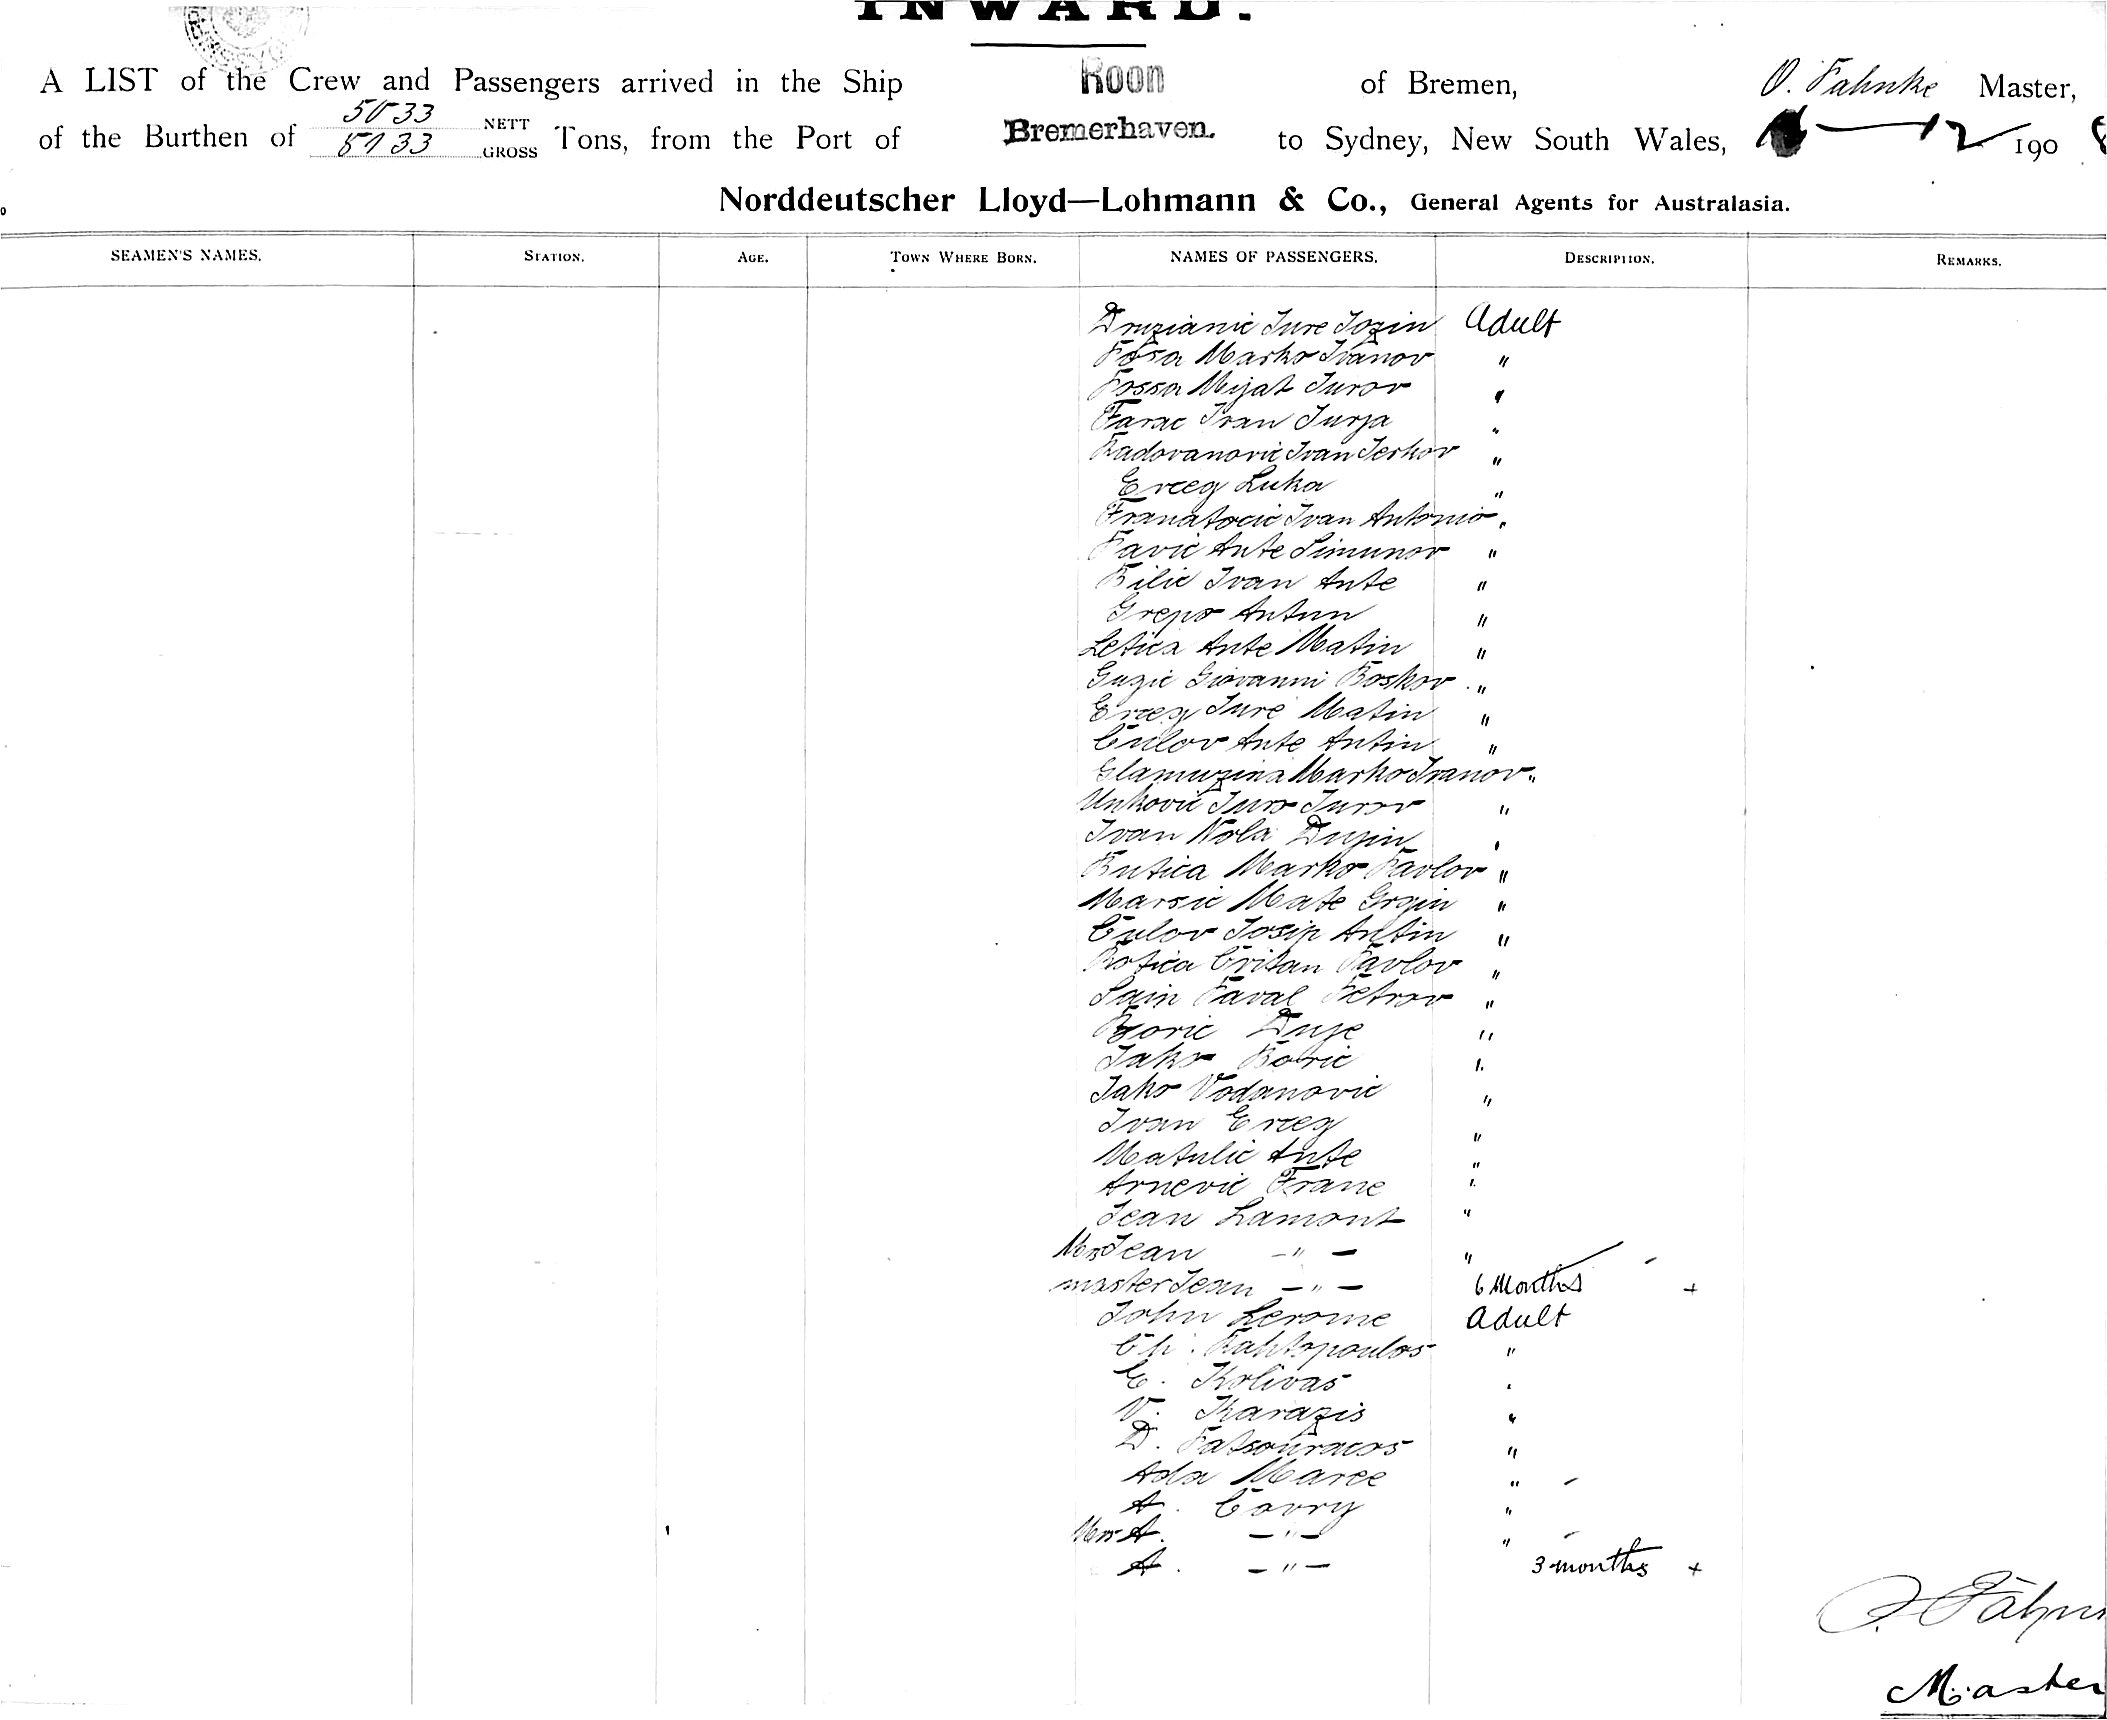 INWARD.
A LIST of the Crew and Passengers arrived in the Ship Roon of Bremen, O. Fahnke Master,
of the Burthen of 5033 NETT 8133 GROSS Tons, from the Port of Bremerhaven. to Sydney, New South Wales, 12 1908
Norddeutscher Lloyd—Lohmann & Co., General Agents for Australasia.
SEAMEN'S NAMES. STATION. AGE. TOWN WHERE BORN. NAMES OF PASSENGERS. DESCRIPTION. REMARKS.
Druzianic Jure Jozin Adult
Fosa Marko Ivanov "
Fossa Mijat Jurov "
Farac Ivan Jurja "
Radovanovic Ivan Jerkov "
Erceg Luka "
Franatocic Ivan Antonio "
Pavic Ante Simunov "
Bilic Ivan Ante "
Grepo Antun "
Letica Ante Matin "
Guzic Giovanni Boskov "
Erceg Jure Matin "
Culov Ante Antin "
Glamuzina Marko Ivanov "
Unkovic Juro Jurov "
Ivan Nola Dujin "
Butica Marko Pavlov "
Marsic Mate Grgin "
Culov Josip Antin "
Botica Cristan Pavlov "
Sain Paval Petrov "
Boric Duje "
Jako Boric "
Jako Vodanovic "
Ivan Erceg "
Matulic Ante "
Arnevic Frane "
Jean Lamont "
Mrs Jean — " — "
master Jean — " — 6 Months +
John Lerome Adult
Ch. Rahtopoulos "
E. Kolivas "
V. Karazis "
D. Fatsouracos "
Ada Maree "
A. Corry "
Mrs A. — " — "
A. — " — 3 months +
Master